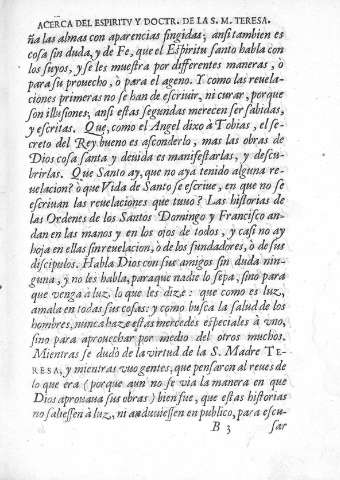 ACERCA DEL ESPIRITV Y DOCTR. DE LA S. M. TERESA.
ña las almas con aparencias fingidas; ansi tambien es
cosa sin duda, y de Fe, que el Espiritu santo habla con
los suyos, y se les muestra por differentes maneras, ò
para su prouecho, ò para el ageno. Y como las reuela-
ciones primeras no se han de escriuir, ni curar, porque
son illusiones; ansi estas segundas merecen ser sabidas,
y escritas. Que, como el Angel dixo à Tobias, el se-
creto del Rey bueno es asconderlo, mas las obras de
Dios cosa santa y deuida es manifestarlas, y descu-
brirlas. Que Santo ay, que no aya tenido alguna re-
uelacion? ò que Vida de Santo se escriue, en que no se
escriuan las reuelaciones que tuuo? Las historias de
las Ordenes de los Santos Domingo y Francisco an-
dan en las manos y en los ojos de todos, y casi no ay
hoja en ellas sin reuelacion, ò de los fundadores, ò de sus
discipulos. Habla Dios con sus amigos sin duda nin-
guna, y no les habla, paraque nadie lo sepa, sino para
que venga à luz, lo que les dize: que como es luz,
amala en todas sus cosas: y como busca la salud de los
hombres, nunca haze estas mercedes especiales à vno,
sino para aprouechar por medio del otros muchos.
Mientras se dudò de la virtud de la S. Madre TE-
RESA, y mientras vuo gentes, que pensaron al reues de
lo que era (porque aun no se vìa la manera en que
Dios aprouaua sus obras) bien fue, que estas historias
no saliessen à luz, ni anduuiessen en publico, para escu-
B 3 sar